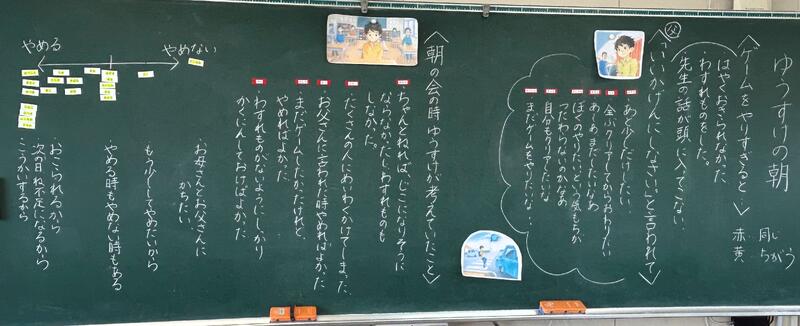 ゆうすけの朝
同じ
赤
ちがう
黄
〈ゲームをやりすぎると…〉
・はやくおきられなかった
・わすれものをした。
・先生の話が頭に入ってこない。
父
〈「いいかげんにしなさい。」と言われて〉
・あと少しだけしたい。
・全ぶクリアしてからおわりたい
・あーあまだしたいなあ
・ぼくのやりたいという気もちが
つたわらないのかなあ
・自分もクリアしたいな
・まだゲームをやりたいな…
〈朝の会の時ゆうすけが考えていたこと〉
・ちゃんとねれば、じこになりそうに
ならなかったし、わすれものも
しなかった。
・たくさんの人にめいわくかけてしまった。
・お父さんに言われた時やめればよかった
・まだゲームしたかったけれど、
やめればよかった。
・わすれものがないようにしっかり
かくにんしておけばよかった。
やめない
やめる
・お母さんとお父さんに
もう少ししてやめたいから
やめる時もやめない時もある
・おこられるから
次の日ね不足になるから
こうかいするから